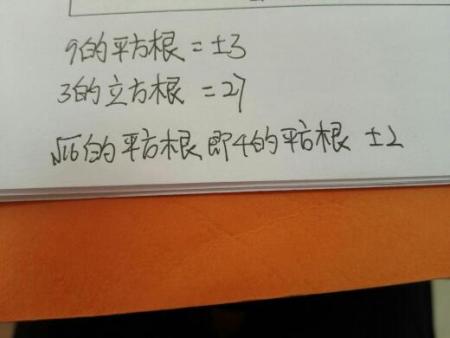 9的平方根=±3
3的立方根=27
√16的平方根即4的平方根 ±2